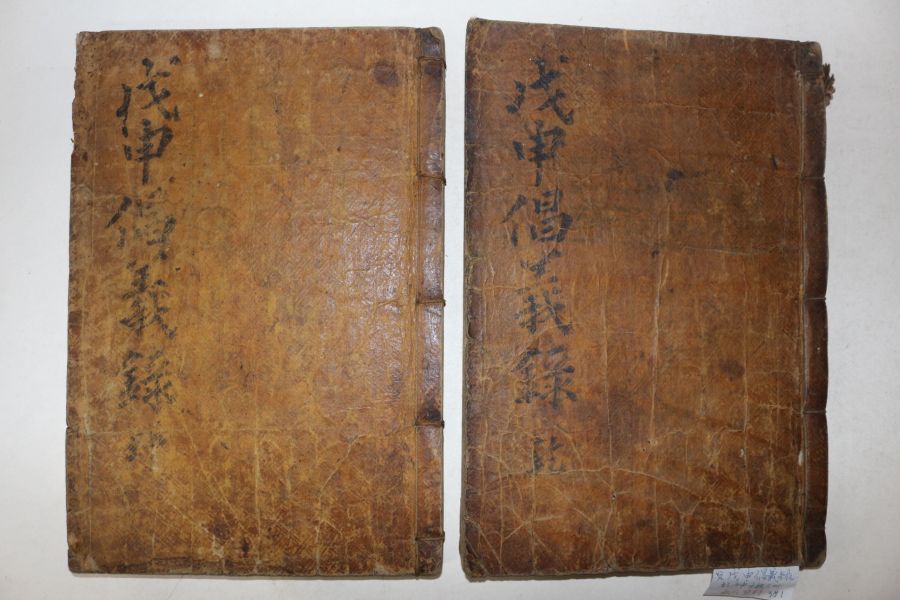 戊申倡義錄 乾
戊申倡義錄 坤